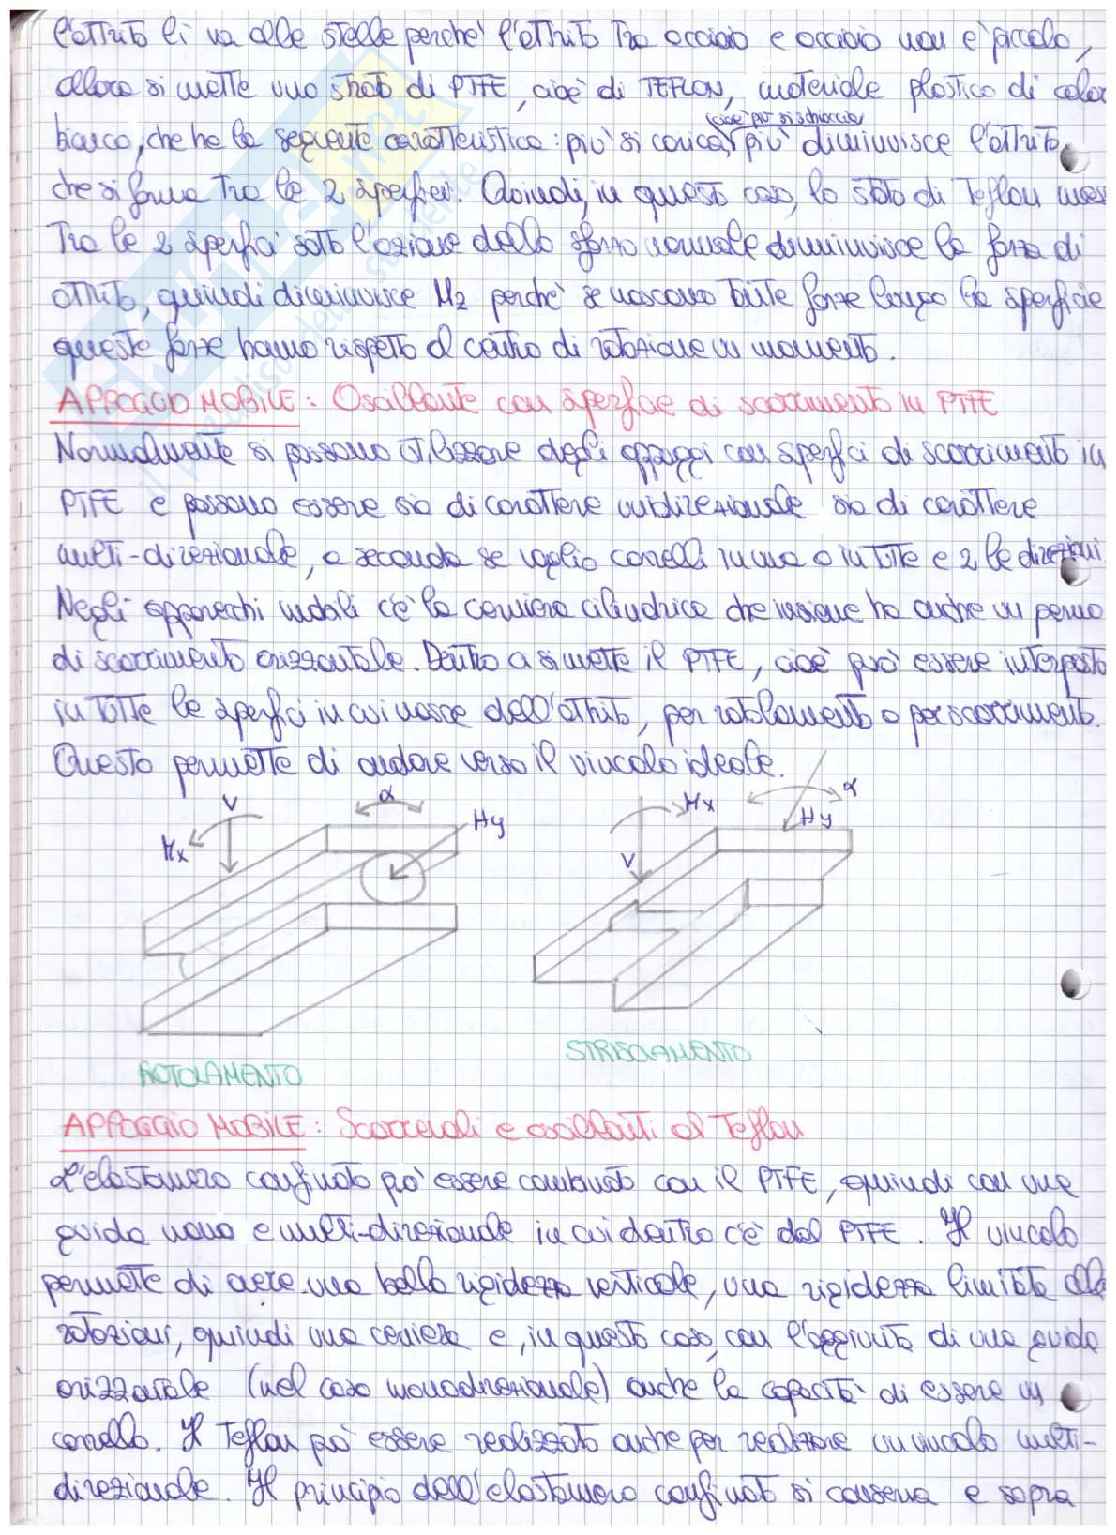 l'attrito lì va alle stelle perché l'attrito tra acciaio e acciaio non è piccolo,
allora si mette uno strato di PTFE, cioè di TEFLON, materiale plastico di color
(cioè più si schiaccia)
bianco, che ha la seguente caratteristica: più si carica, più diminuisce l'attrito
che si forma tra le 2 superfici. Quindi, in questo caso, lo strato di Teflon messo
tra le 2 superfici sotto l'azione dello sforzo normale diminuisce la forza di
attrito, quindi diminuisce M2 perché se nascono tutte forze lungo la superficie
queste forze hanno rispetto al centro di rotazione un momento.
APPOGGIO MOBILE: Oscillante con superficie di scorrimento in PTFE
Normalmente si possono utilizzare degli appoggi con superfici di scorrimento in
PTFE e possono essere sia di carattere unidirezionale sia di carattere
multi-direzionale, a seconda se voglio carrelli in una o in tutte e 2 le direzioni
Negli apparecchi mobili c'è la cerniera cilindrica che insieme ha anche un perno
di scorrimento orizzontale. Dentro ci si mette il PTFE, cioè può essere interposto
in tutte le superfici in cui nasce dell'attrito, per rotolamento o per scorrimento.
Questo permette di andare verso il vincolo ideale.
V α Hy Hx
Hx α Hy V
STRISCIAMENTO
ROTOLAMENTO
APPOGGIO MOBILE: Scorrevoli e oscillanti al Teflon
L'elastomero confinato può essere combinato con il PTFE, quindi con una
guida mono e multi-direzionale in cui dentro c'è del PTFE. Il vincolo
permette di avere una bella rigidezza verticale, una rigidezza limitata alle
rotazioni, quindi una cerniera e, in questo caso, con l'aggiunta di una guida
orizzontale (nel caso monodirezionale) anche la capacità di essere un
carrello. Il Teflon può essere realizzato anche per realizzare un vincolo multi-
direzionale. Il principio dell'elastomero confinato si conserva e sopra